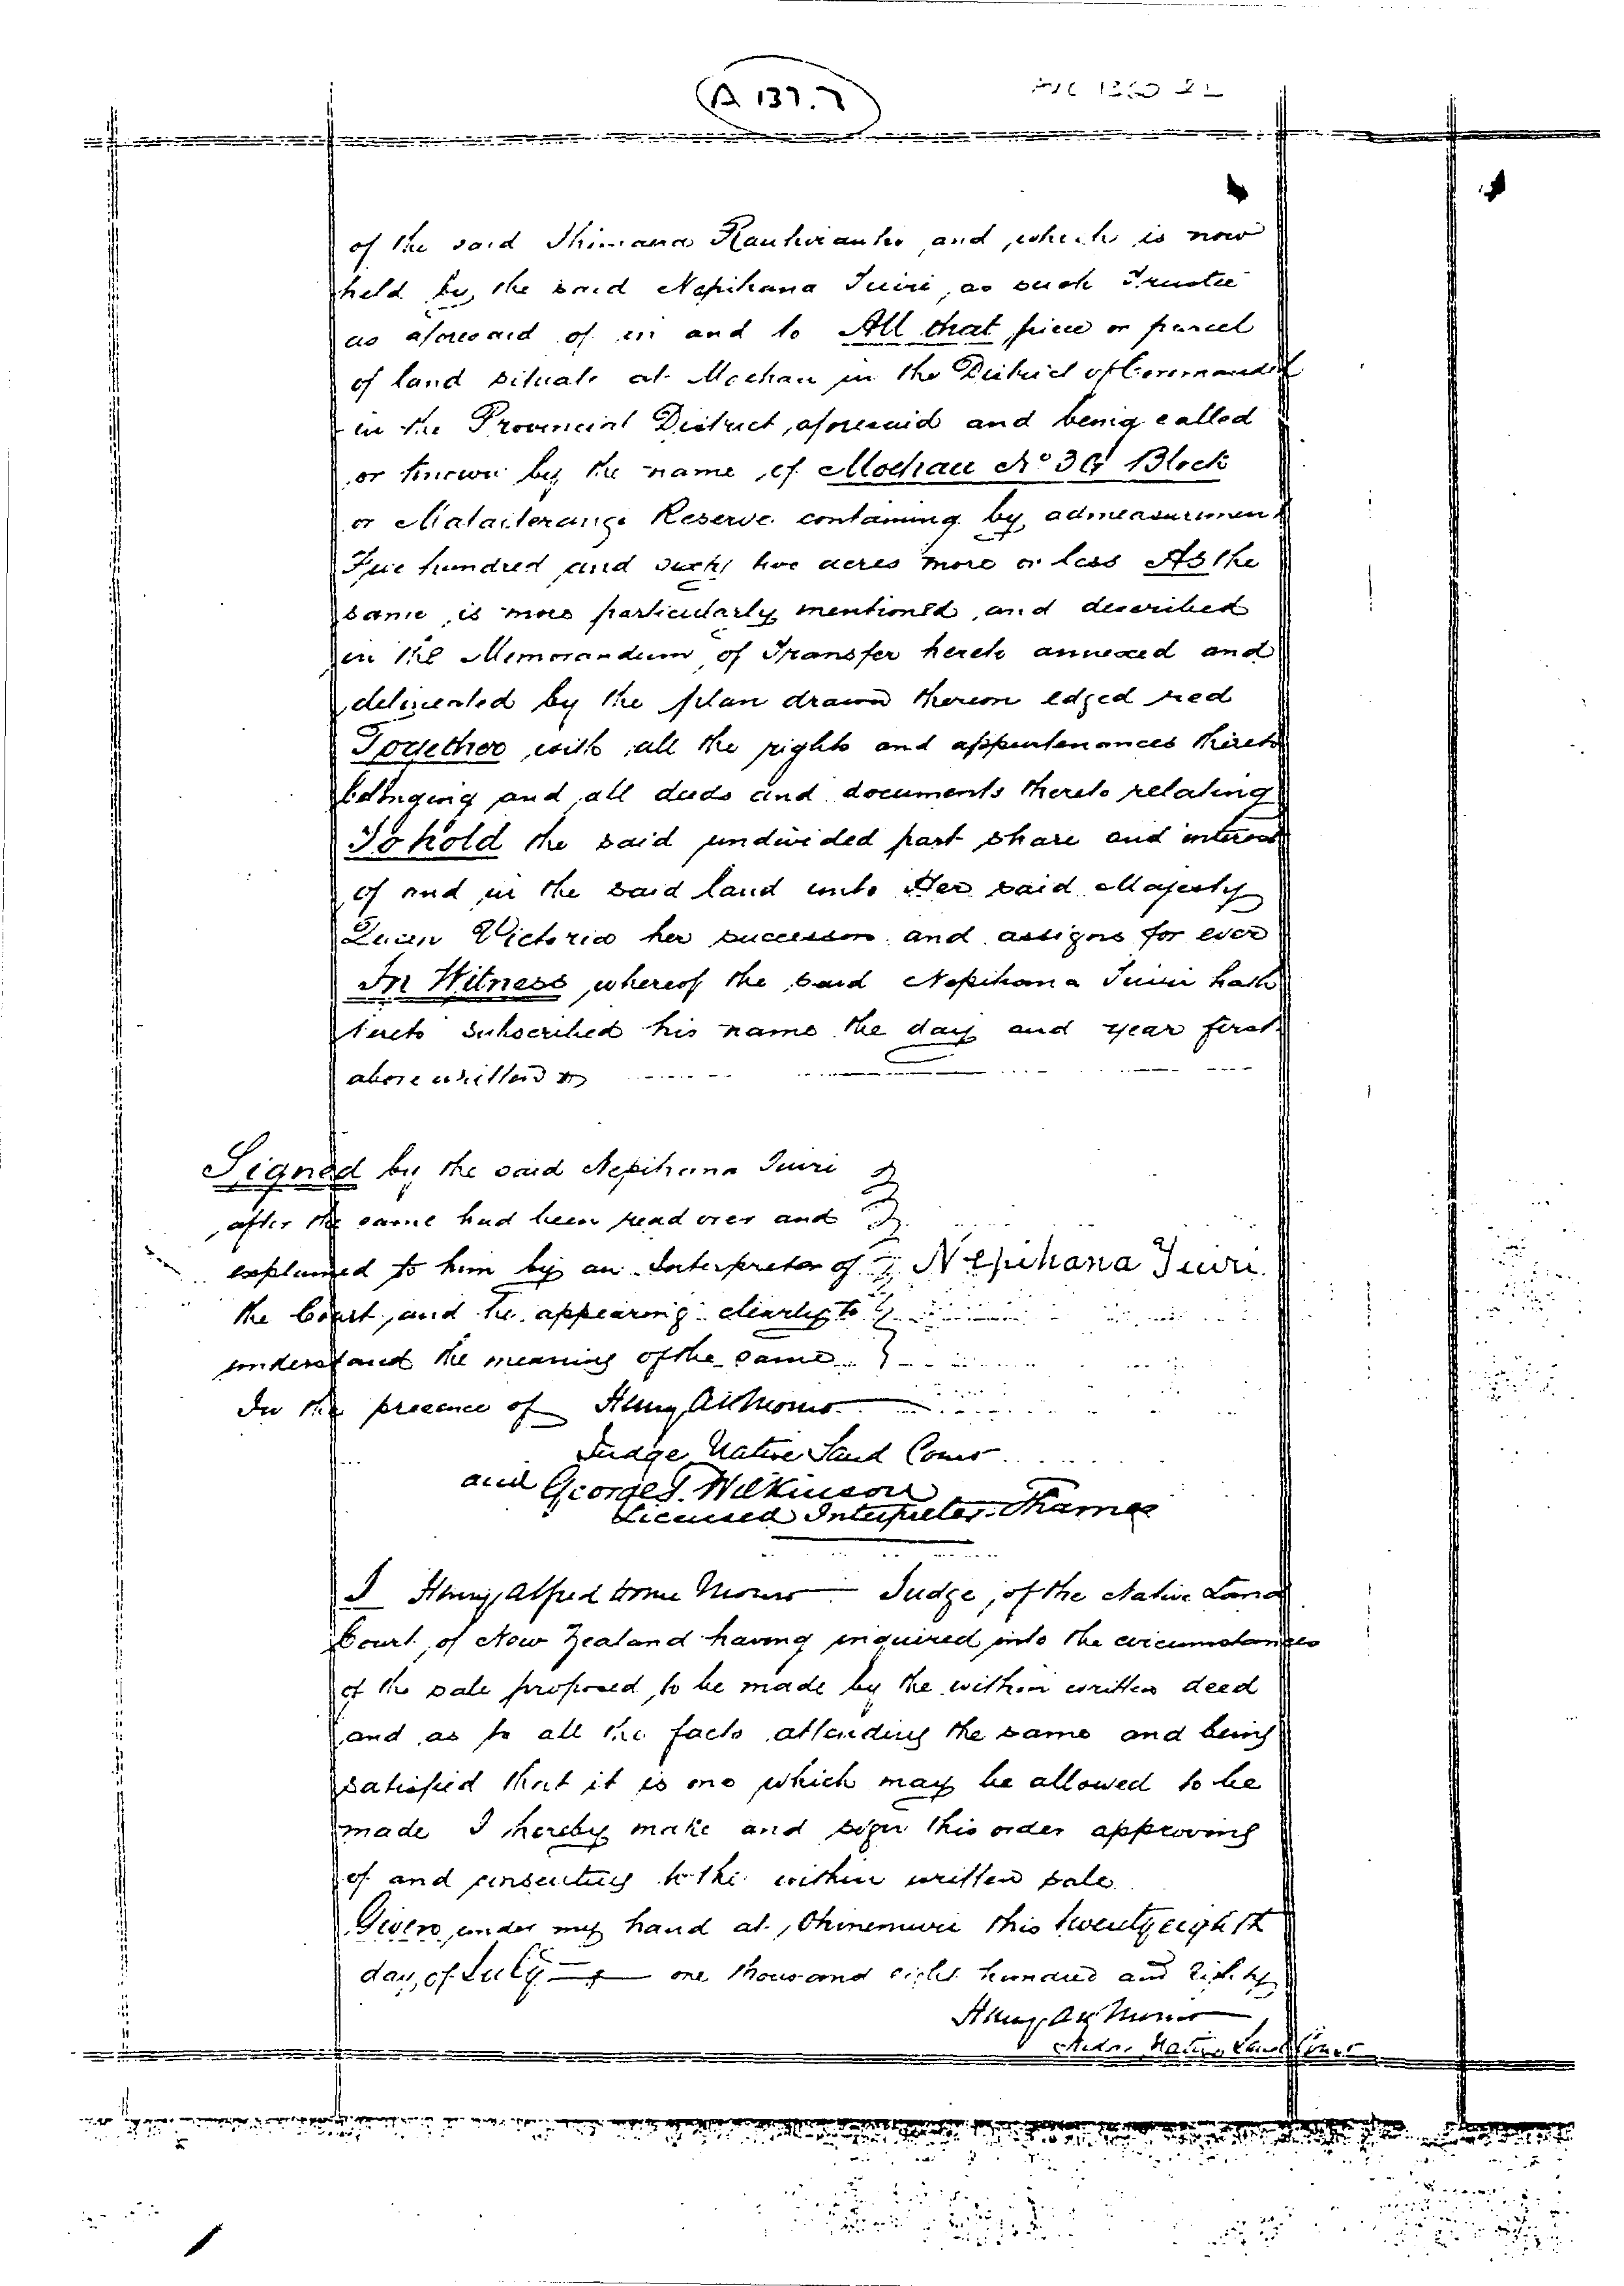 A 137.7
of the said Ihimana and which is now
held by the said Nepihana Tuiri, as such Trustee
as aforesaid of in and to All that piece or parcel
of land situate at Moehau in the District of Coromandel
in the Provincial District aforesaid and being called
or known by the name of Moehau No 3G Block
or Reserve containing by admeasurement
Five hundred and sixty two acres more or less As the
same is more particularly mentioned and described
in the Memorandum of Transfer hereto annexed and
delineated by the plan drawn thereon edged red
Together with all the rights and appurtenances thereto
belonging and all deeds and documents thereto relating
To hold the said undivided part share and interest
of and in the said land unto Her said Majesty
Queen Victoria her successors and assigns for ever
In Witness whereof the said Nepihana Tuiri hath
hereto subscribed his name the day and year first
above written
Signed by the said Nepihana Tuiri
after the same had been read over and
explained to him by an Interpreter of Nepihana Tuiri
the Court, and he appearing clearly to
understand the meaning of the same
In the presence of Henry A H Monro
Judge Native Land Court
and George T. Wilkinson
Licensed Interpreter. Thames
I Henry Alfred Home Monro Judge, of the Native Land
Court of New Zealand having inquired into the circumstances
of the sale proposed to be made by the within written deed
and as to all the facts attending the same and being
satisfied that it is one which may be allowed to be
made I hereby make and sign this order approving
of and consenting to the within written sale.
Given under my hand at Ohinemuri this twenty eighth
day of July one thousand eight hundred and Eighty
Henry A H Monro
Native Land Court